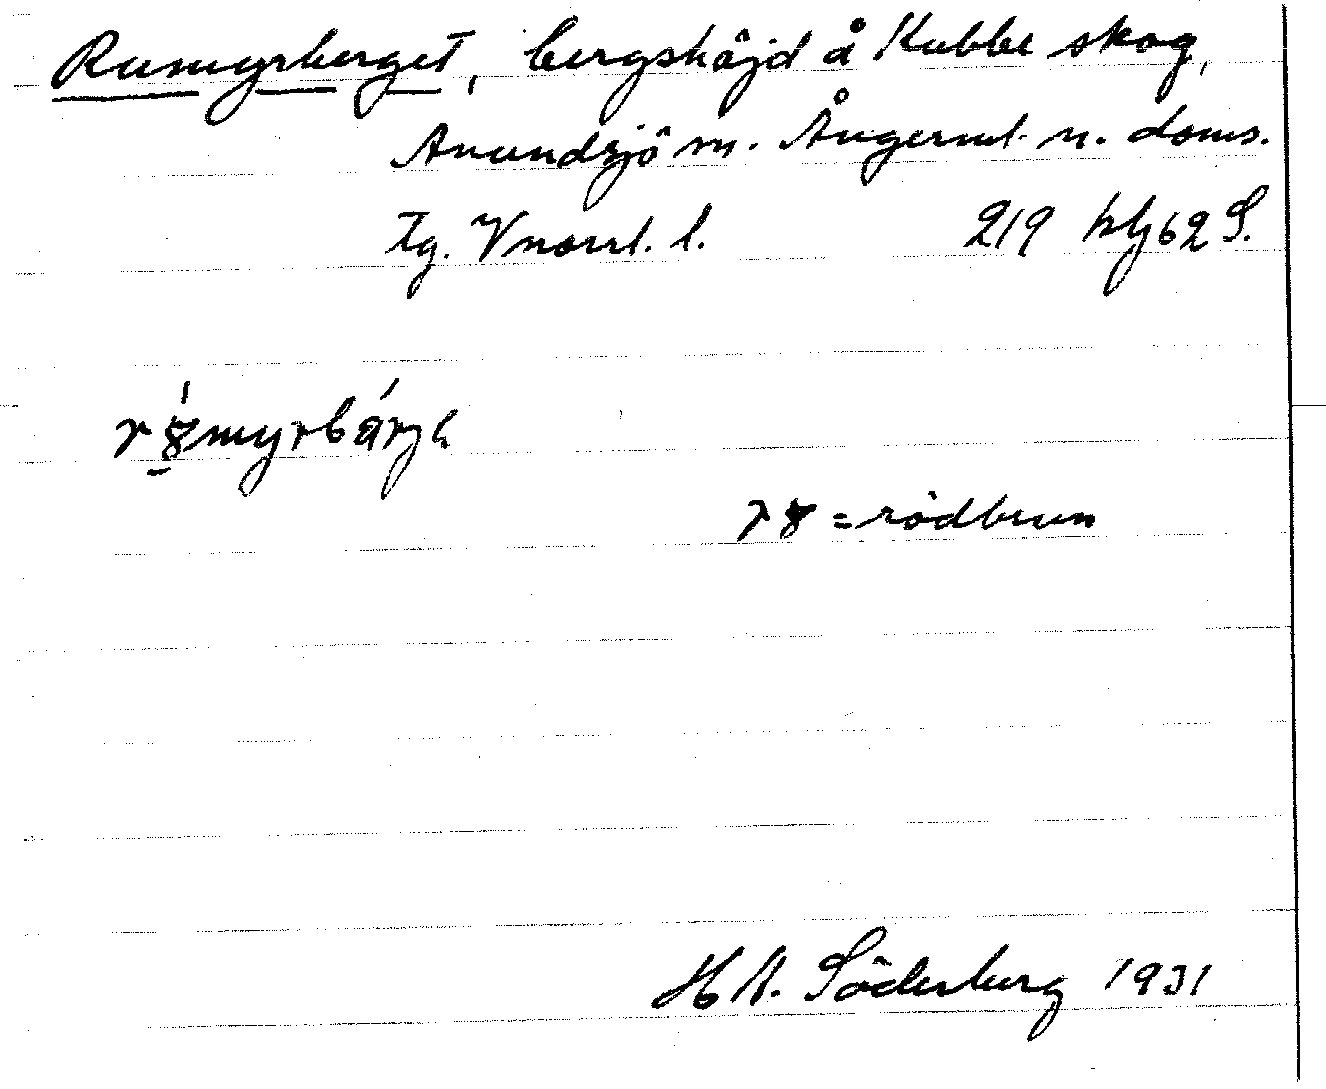 Rumyrberget, bergshöjd å Kubbe skog,
Anundsjö sn. Ångerml. n. doms.
tg. Vnorrl. l. 219 62 S.
= rödbrun
H A. Söderberg 1931